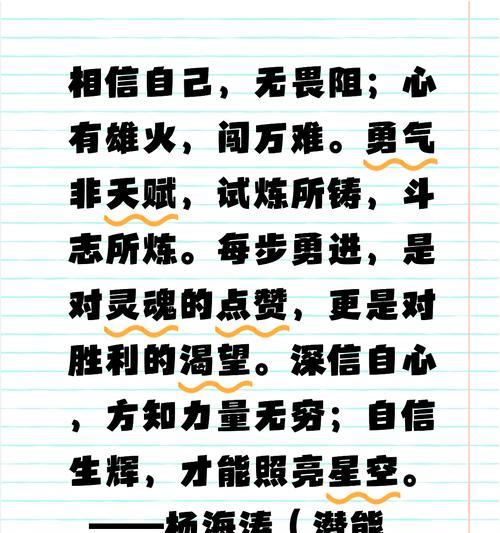 相信自己，无畏阻；心
有雄火，闯万难。勇气
非天赋，试炼所铸，斗
志所炼。每步勇进，是
对灵魂的点赞，更是对
胜利的渴望。深信自心
，方知力量无穷；自信
生辉，才能照亮星空。
——杨海涛（潜能